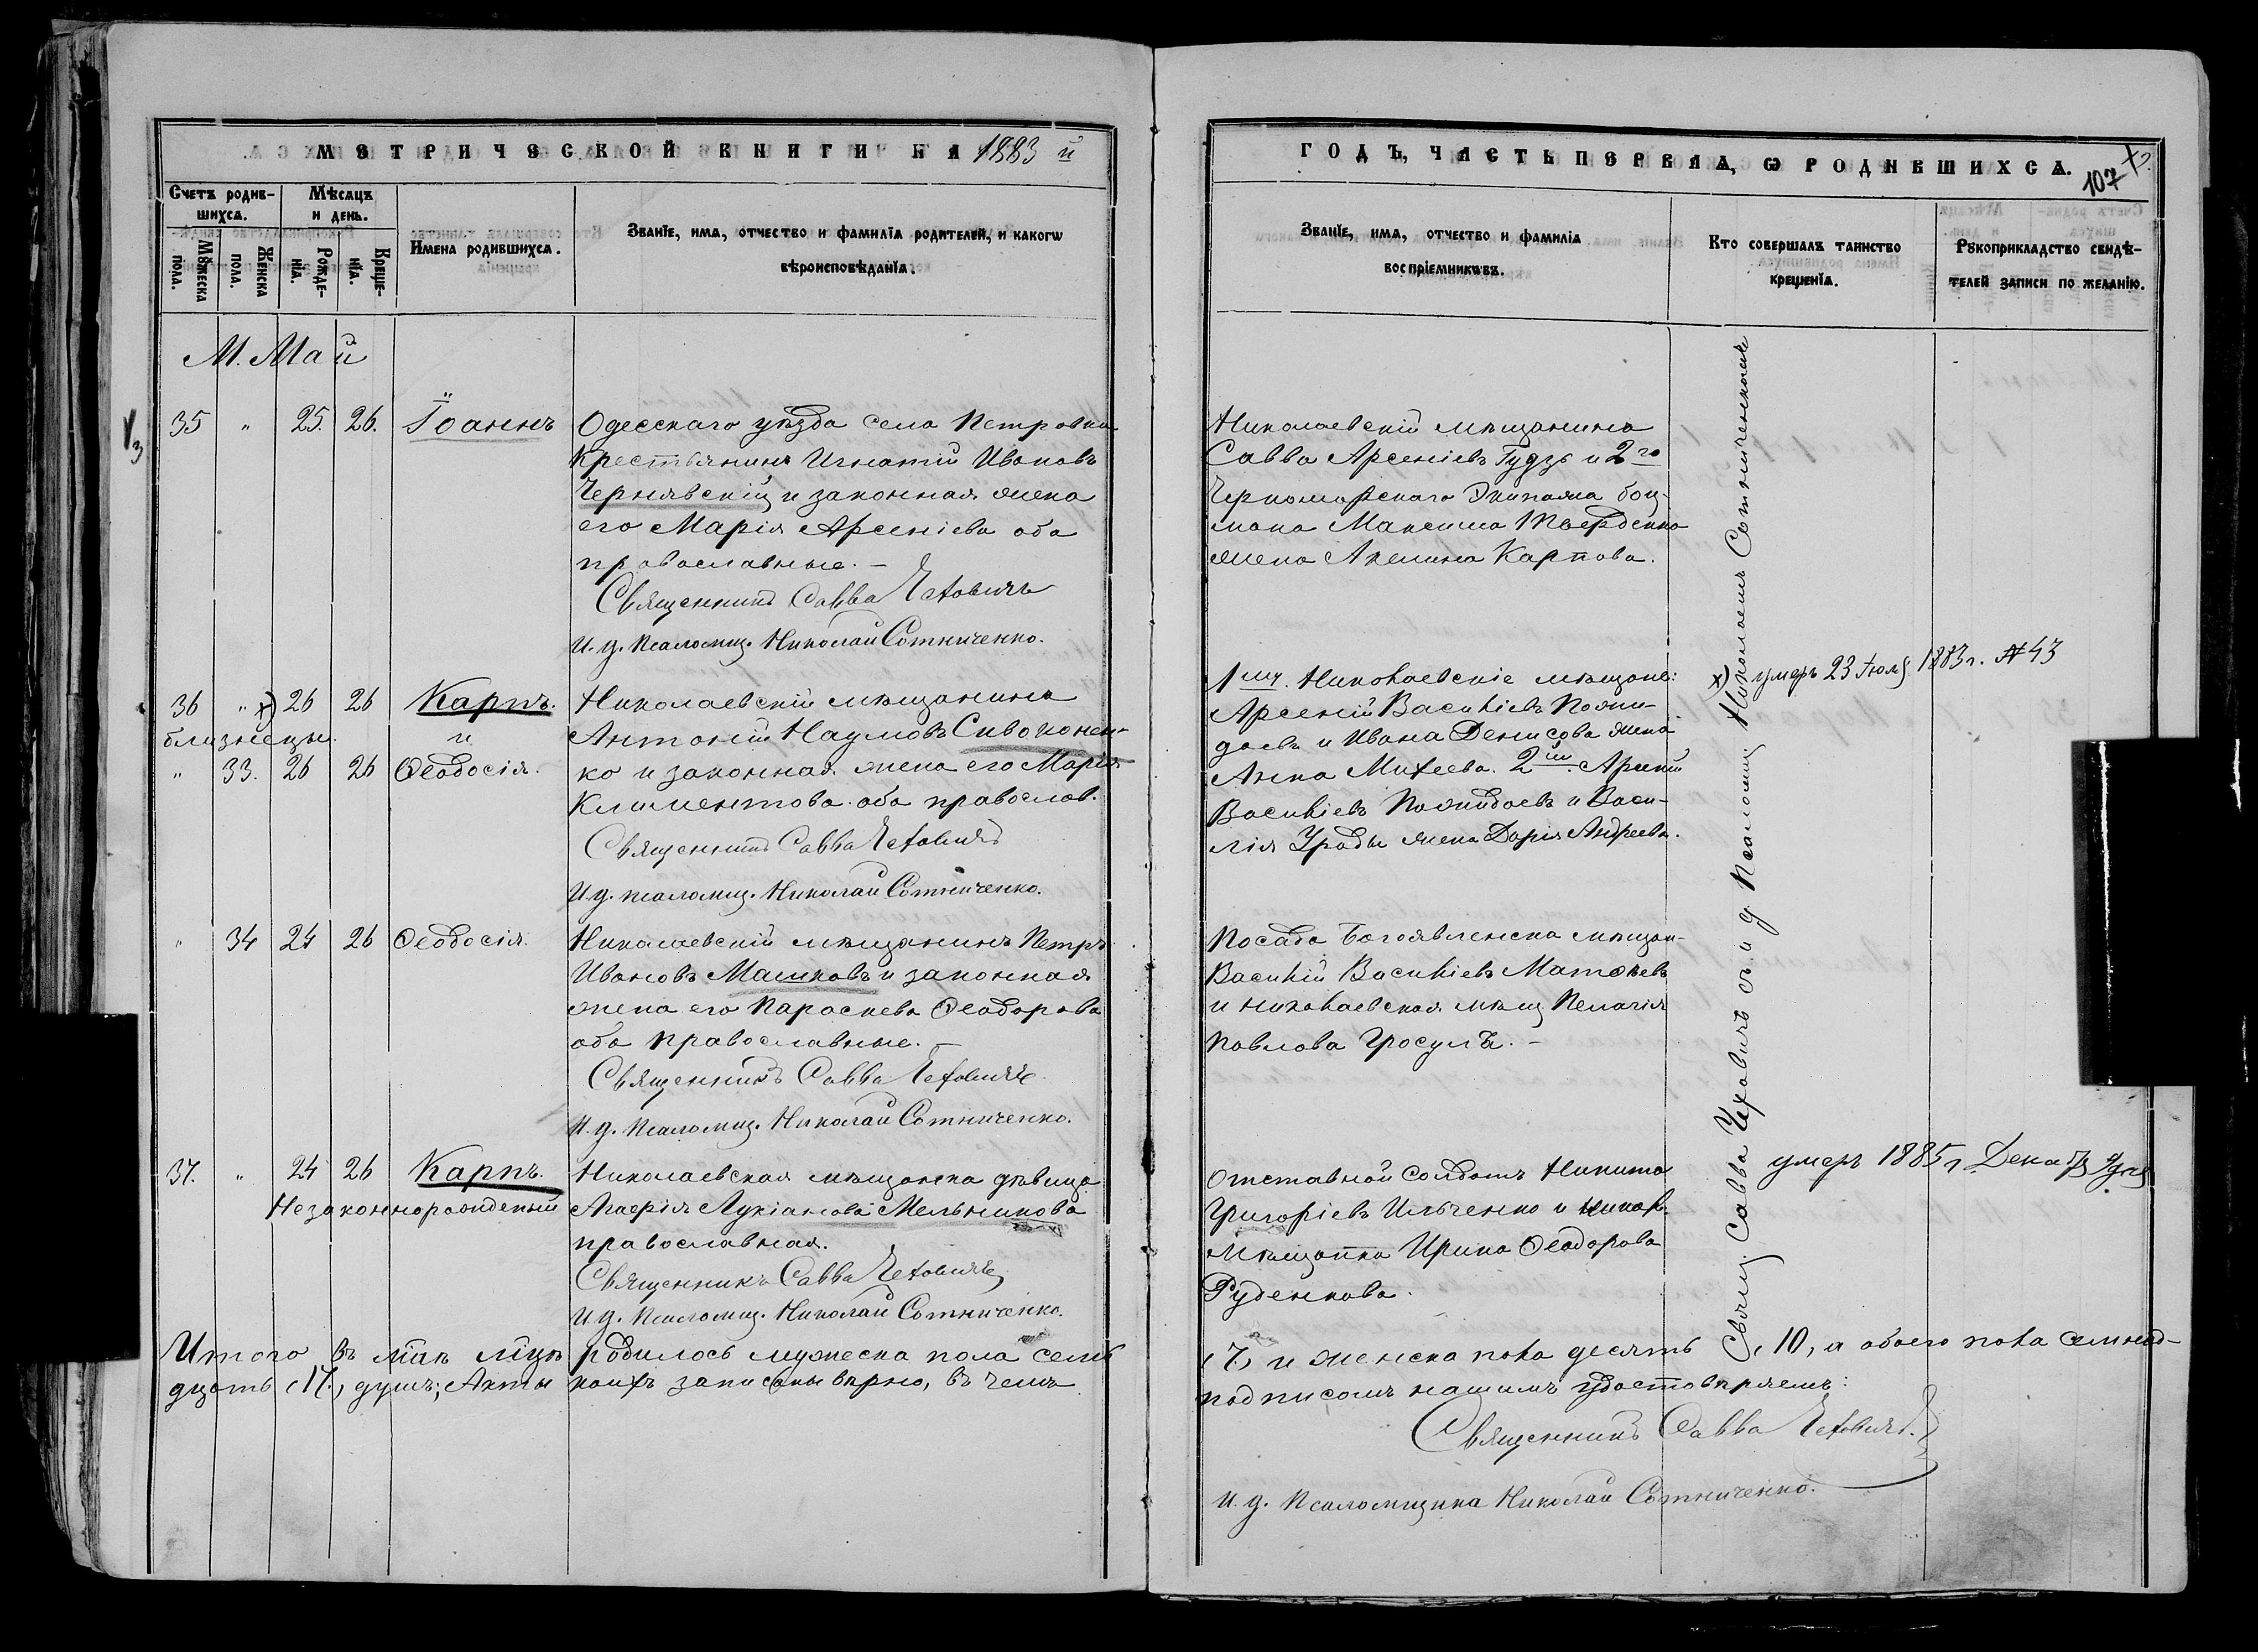 МЕТРИЧЕСКОЙ КНИГИ НА 1883 й
Счетъ родив-
шихся.
Мѣсяцъ
и день.
Мужеска
пола.
Женска
пола.
Рожде-
нія.
Креще-
нія.
Имена родившихся.
Званіе, имя, отчество и фамилія родителей, и какогѡ
вѣроисповѣданія.
М. Май
35 " 25. 26. Іоаннъ
Одесскаго уѣзда села Петровки
Крестьянинъ Игнатій Ивановъ
Чернявскій и законная жена
его Марія Арсеніева оба
православные. –
Священникъ Савва Чеховичъ
И. д. Псаломщ. Николай Сотниченко.
36 " х) 26 26 Карпъ.
близнецы. и
" 33. 26 26 Ѳеодосія.
Николаевскій мѣщанинъ
Антоній Наумовъ Сивоконен-
ко и законная жена его Марія
Климентова оба православ.
Священникъ Савва Чеховичъ
И д. псаломщ. Николай Сотниченко.
" 34 24 26 Ѳеодосія.
Николаевскій мѣщанинъ Петръ
Ивановъ Машковъ и законная
жена его Параскева Ѳеодорова
оба православные. –
Священникъ Савва Чеховичъ
И. д. Псаломщ. Николай Сотниченко.
37. " 24 26 Карпъ.
Незаконнорожденный
Николаевская мѣщанка дѣвица
Агафія Лукіанова Мельникова
православная.
Священникъ Савва Чеховичъ
И д. Псаломщ. Николай Сотниченко.
Итого въ маѣ мцѣ родилось мужеска пола семь
дцать (17.) душъ; Акты коихъ записаны вѣрно, въ чемъ
ГОДЪ, ЧАСТЬ ПЕРВАЯ, Ѡ РОДИВШИХСЯ.
107
Званіе, имя, отчество и фамилія
воспріемниковъ.
Кто совершалъ таинство
крещенія.
Рукоприкладство свидѣ-
телей записи по желанію.
Николаевскій мѣщанинъ
Савва Арсеніевъ Гудзь и 2го
Черноморскаго Экипажа боц-
мана Максима Тверденко
жена Акелина Карпова.
1му. Николаевскіе мѣщане:
Арсеній Василіевъ
и Ивана Денисова жена
Анна Михеева. 2й. Арсеній
Василіевъ и Васи-
лія Урады жена Дарія Андреева.
Посада Богоявленска мѣщан-
Василій Василіевъ
и николаевская мѣщ Пелагія
Павлова Гросулъ. –
Отставной солдатъ Никита
Григоріевъ Ильченко и никол.
Мѣщанка Ирина Ѳеодорова
Руденкова.
Свящ. Савва Чеховичъ съ и д Псаломщ Николаемъ Сотниченкомъ
х) умеръ 23 Іюля 1883 г. №43
умеръ 1885 г Дека 7 дня
(7) и женска пола десять (10), а обоего пола семнад-
подписомъ нашимъ удостовѣряемъ:
Священникъ Савва Чеховичъ.
И. д. Псаломщика Николай Сотниченко.